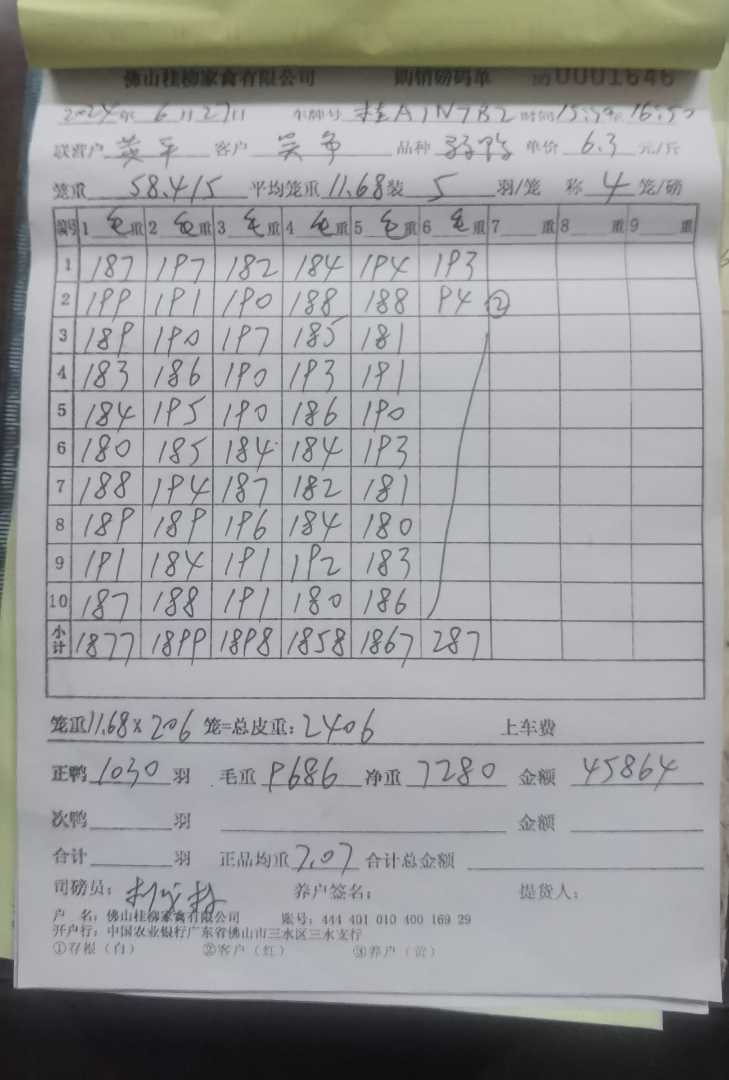 佛山桂柳家禽有限公司 购销磅码单 0001646
2024年6月27日 车牌号 桂A1N7B2 时间15:59 16:50
联营户 黄平 客户 吴争 品种 单价 6.3 元/斤
笼重 58.4/5 平均笼重 11.68 装 5 羽/笼 称 4 笼/磅
编号 1 毛重 2 毛重 3 毛重 4 毛重 5 毛重 6 毛重 7 重 8 重 9 重
1 187 197 182 184 194 193
2 199 191 190 188 188 94 ②
3 189 190 197 185 181
4 183 186 190 193 191
5 184 195 190 186 190
6 180 185 184 184 193
7 188 194 187 182 181
8 189 189 196 184 180
9 191 184 191 192 183
10 187 188 191 180 186
小计 1877 1899 1898 1858 1867 287
笼重11.68×206 笼=总皮重:2406 上车费
正鸭 1030 羽 毛重 9686 净重 7280 金额 45864
次鸭 羽 金额
合计 羽 正品均重 7.07 合计总金额
司磅员: 养户签名: 提货人:
户 名:佛山桂柳家禽有限公司 账号:444 401 010 400 169 29
开户行:中国农业银行广东省佛山市三水区三水支行
①存根(白) ②客户(红) ③养户(黄)